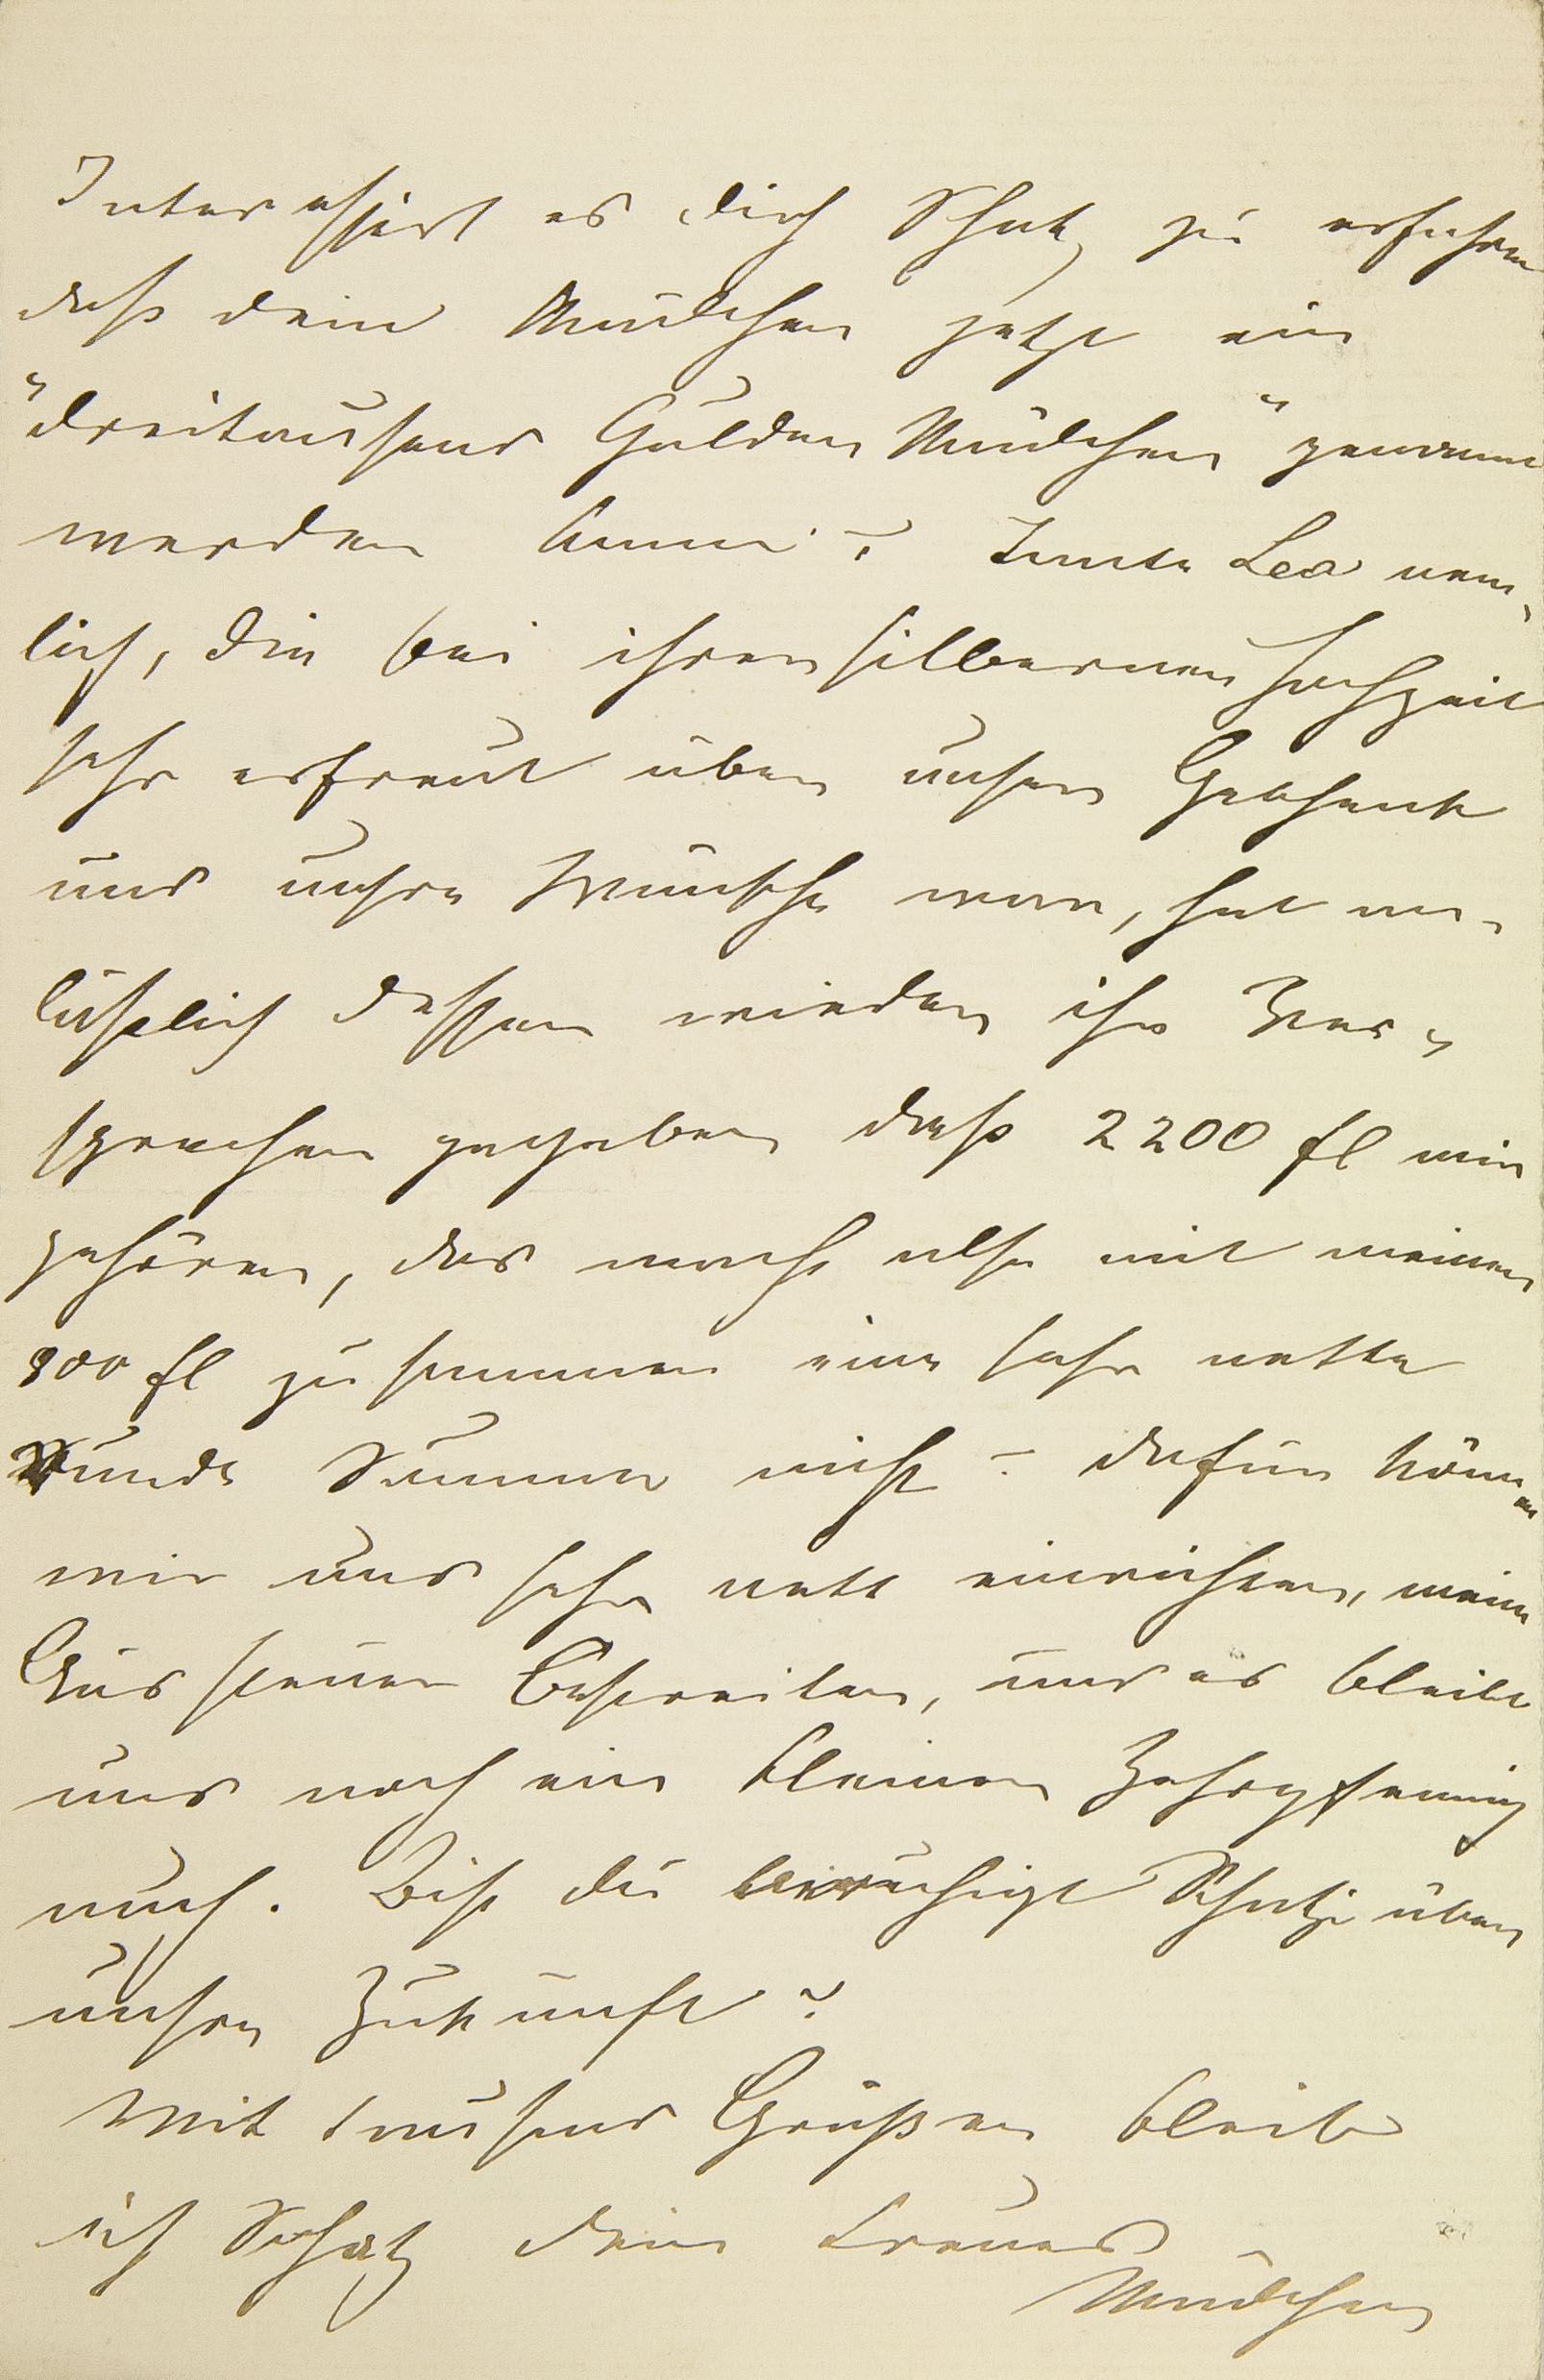 Interessirt es dich Schatz zu erfahren
daß dein Mädchen jetzt ein
"dreitausend Gulden Mädchen" genannt
werden kann? Tante Lea näm-
lich, die bei ihrer silbernen Hochzeit
sehr erfreut über unser Geschenk
und unsre Wünsche war, hat an-
läßlich dessen wieder ihr Ver-
sprechen gegeben daß 2200 fl mir
gehören, das macht also mit meinen
800 fl zusammen eine sehr nette
runde Summe nicht? dafür können
wir uns sehr nett einrichten, meine
Aussteuer bestreiten, und es bleibt
uns noch ein kleiner Zehrpfennig
auch. Bist du beruhigt Schatzi über
unsre Zukunft?
Mit tausend Grüßen bleib
ich Schatz dein treues
Mädchen